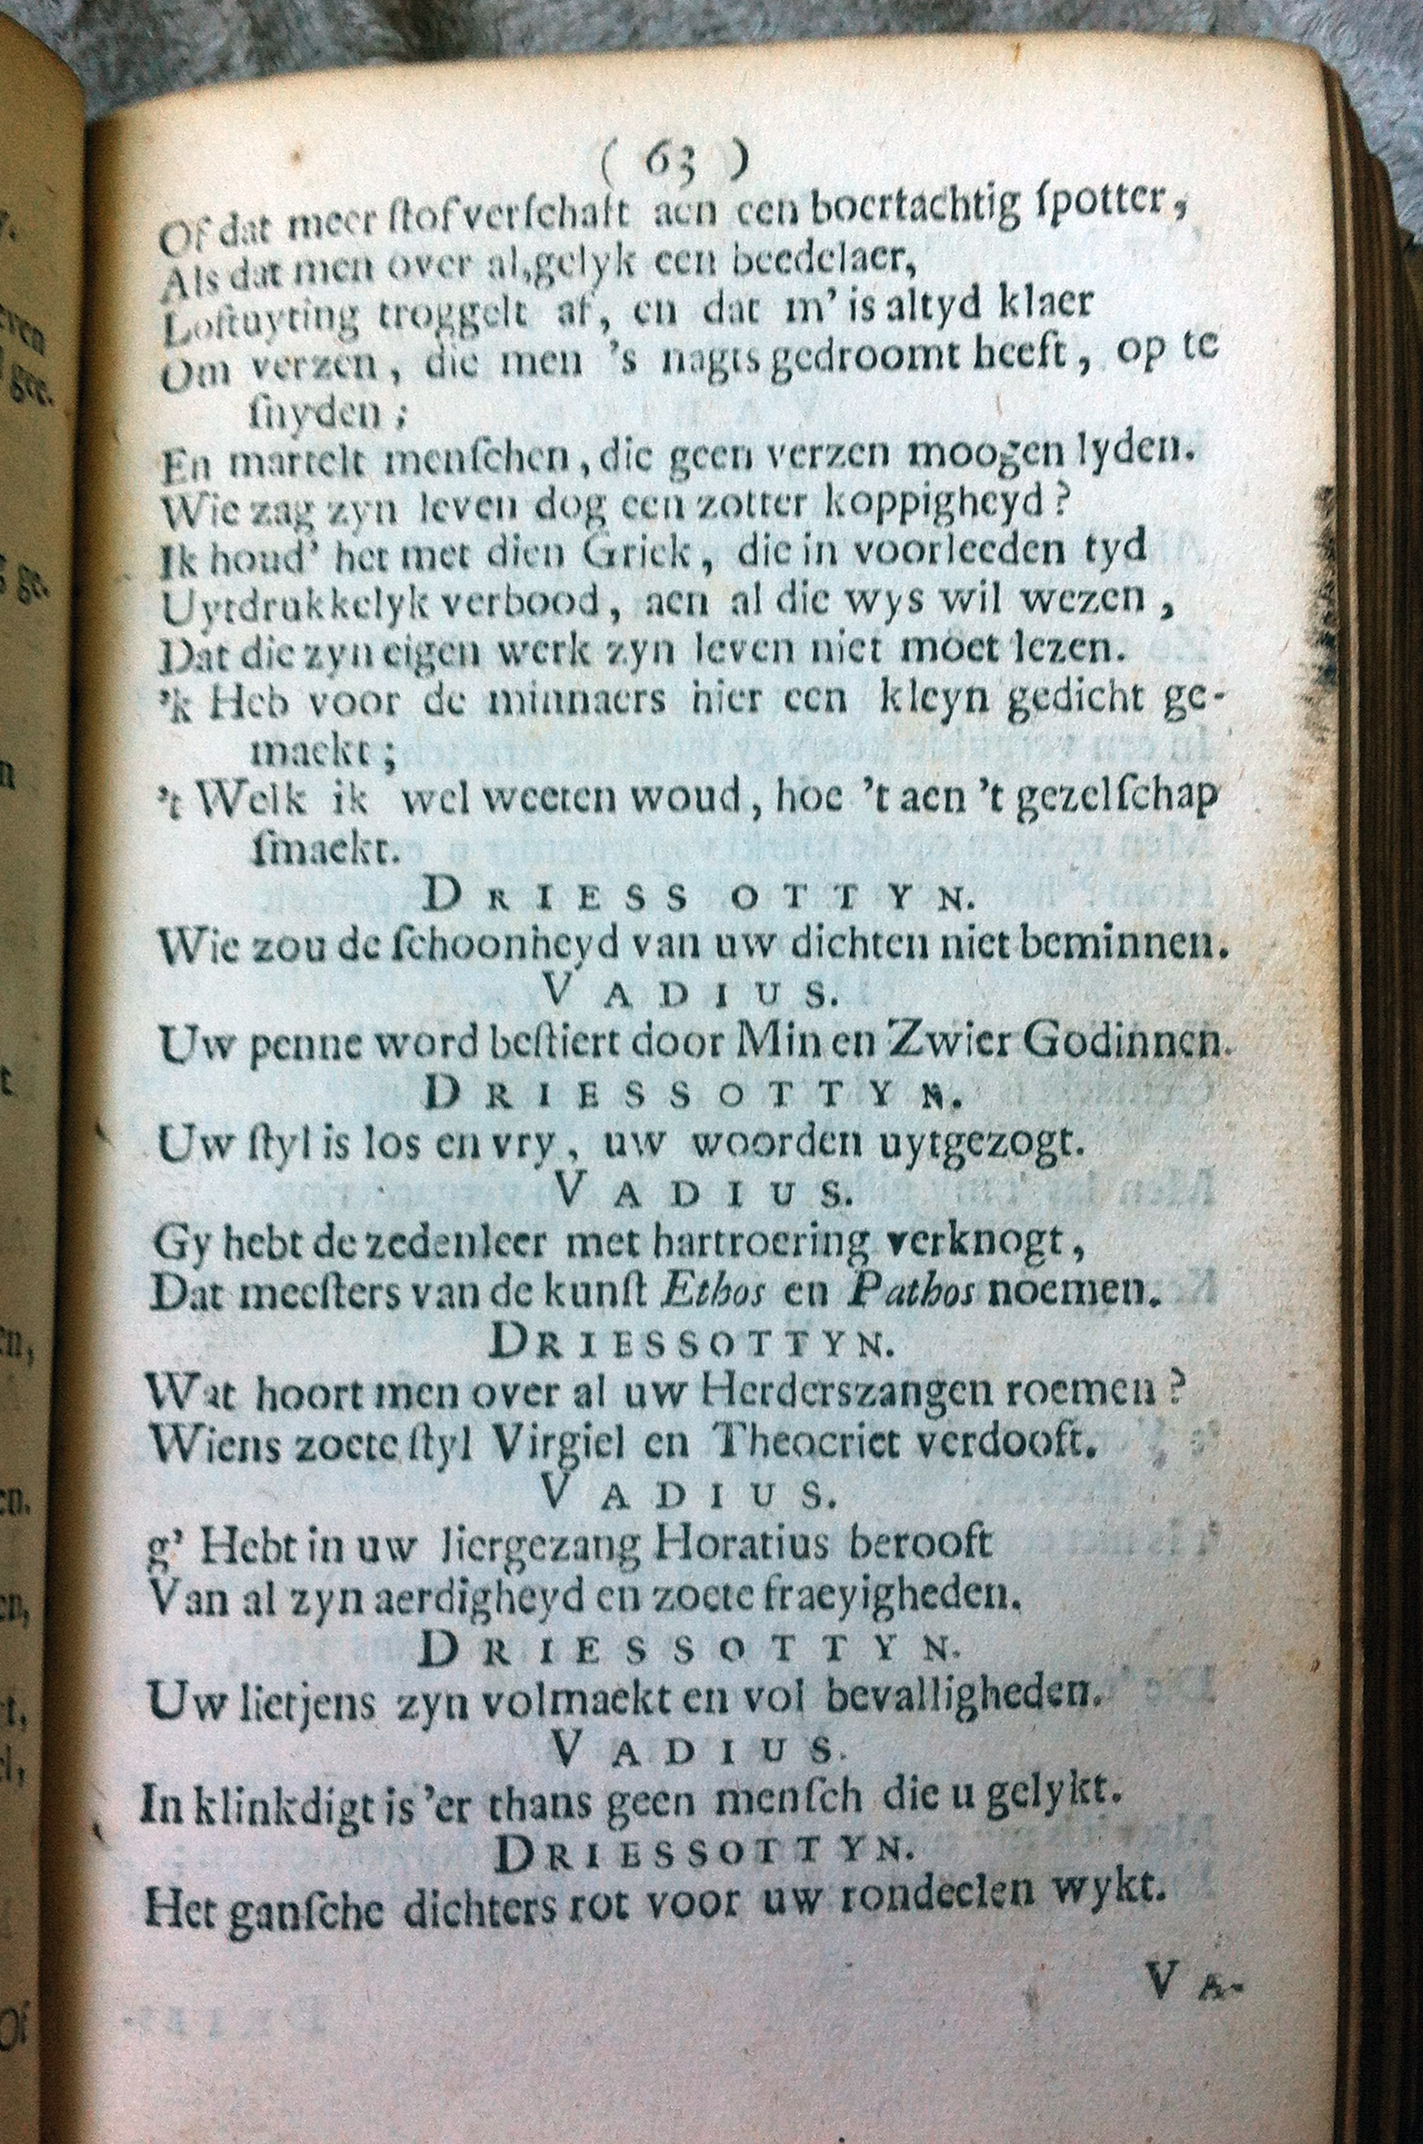 ( 63 )
Of dat meer ſtof verſchaft aen een boertachtig ſpotter,
Als dat men over al, gelyk een beedelaer,
Loftuyting troggelt af, en dat m' is altyd klaer
Om verzen, die men 's nagts gedroomt heeft, op te
ſnyden;
En martelt menſchen, die geen verzen moogen lyden.
Wie zag zyn leven dog een zotter koppigheyd?
Ik houd' het met dien Griek, die in voorleeden tyd
Uytdrukkelyk verbood, aen al die wys wil wezen,
Dat die zyn eigen werk zyn leven niet moet lezen.
'k Heb voor de minnaers hier een kleyn gedicht ge-
maekt;
't Welk ik wel weeten woud, hoe 't aen 't gezelſchap
ſmaekt.
DRIESSOTTYN.
Wie zou de ſchoonheyd van uw dichten niet beminnen.
VADIUS.
Uw penne word beſtiert door Min en Zwier Godinnen.
DRIESSOTTYN.
Uw ſtyl is los en vry, uw woorden uytgezogt.
VADIUS.
Gy hebt de zedenleer met hartroering verknogt,
Dat meeſters van de kunſt Ethos en Pathos noemen.
DRIESSOTTYN.
Wat hoort men over al uw Herderszangen roemen?
Wiens zoete ſtyl Virgiel en Theocriet verdooft.
VADIUS.
g' Hebt in uw liergezang Horatius berooft
Van al zyn aerdigheyd en zoete fraeyigheden.
DRIESSOTTYN.
Uw lietjens zyn volmaekt en vol bevalligheden.
VADIUS.
In klinkdigt is 'er thans geen menſch die u gelykt.
DRIESSOTTYN.
Het ganſche dichters rot voor uw rondeelen wykt.
VA-